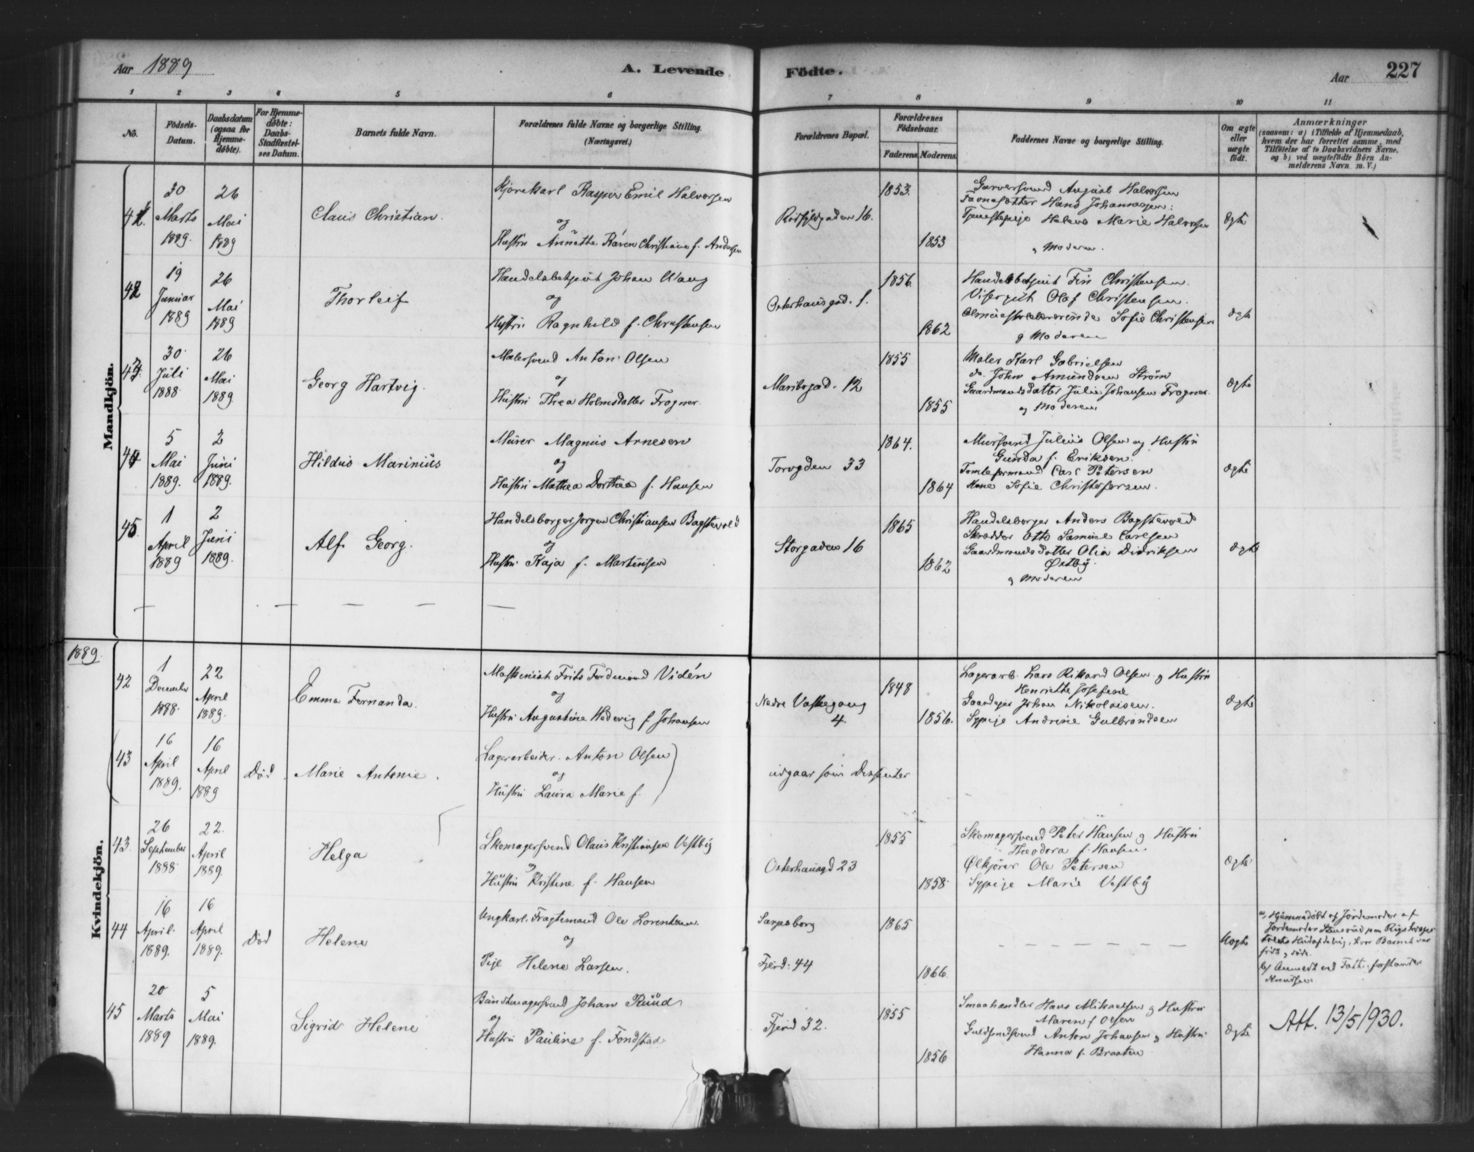 Aar 1889
A. Levende Födte.
Aar
227
1 2 3 4 5 6 7 8 9 10 11
No.
Födsels-Datum.
Daabsdatum (ogsaa for Hjemme-döbte).
For Hjemme-döbte: Daabs-Stadfæstel-ses Datum.
Barnets fulde Navn.
Forældrenes fulde Navne og borgerlige Stilling. (Næringsvei.)
Forældrenes Bopæl.
Forældrenes Födselsaar.
Faderens. Moderens.
Faddernes Navne og borgerlige Stilling.
Om ægte eller uægte födt.
Anmærkninger
(saasom: a) i Tilfælde af Hjemmedaab, hvem der har forrettet samme, med Tilföielse af to Daabsvidners Navne, og b) ved uægtefödte Börn An-melderens Navn m. V.)
Mandkjön.
41. 30 Marts 1889. 26 Mai 1889
Claus Christian.
Kjørekarl Kasper Emil Halvorsen
og
Hustru Annette Karen Christiane f. Andersen
16.
1853
1853
Garversvend August Halvorsen
Hans Johannessen.
Tjenestepige Helene Marie Halvorsen
og Moderen.
ægte
42 19 Januar 1889 26 Mai 1889
Thorleif
Handelsbetjent Johan Wang
og
Hustru Ragnhild f. Christensen
Osterhausgad. 1.
1856
1862
Handelsbetjent Christensen
Olaf Christensen.
Sofie Christensen
og Moderen
ægte
43 30 Juli 1888 26 Mai 1889
Georg Hartvig.
Malersvend Anton Olsen
og
Hustru Thea Holmsdatter Frogner
Maribogad. 12
1855
1855
Maler Karl Gabrielsen
do. John Amundsen Strøm
Gaardmandsdatter Julie Johansen Frogner
og Moderen
ægte
44 5 Mai 1889. 2 Juni 1889.
Hildus Marinius
Murer Magnus Arnesen
og
Hustru Mathea Dorthea f. Hansen
Torvgden 33
1864.
1864
Mursvend Julius Olsen og Hustru
Gunda f. Eriksen.
Carl Petersen
Kone Sofie Christofersen.
ægte
45 1 April 1889 2 Juni 1889.
Alf Georg.
Handelsborger Jørgen Christiansen Bagstevold
og
Hustru Kaja f. Martinsen
Storgaden 16
1865
1862
Handelsborger Anders Bagstevold
Skrædder Otto Samuel Carlsen
Gaardmandsdatter Olia Didriksen
Østby.
og Moderen
ægte
1889.
Kvindekjön.
42 1 December 1888 22 April 1889.
Emma Fernanda.
Maskinist Frits Ferdinand Vidén
og
Hustru Augustine Hedevig f Johansen
Nedre Vaskegang 4
1848
1856.
Lagerarb. Lars Rikhard Olsen og Hustru
Henriette Josefine
Gaardeier Johan Nikolaisen.
Sypige Andrine Gulbrandsen
ægte
43 16 April 1889. 16 April 1889
Død
Marie Antonie.
Lagerarbeider Anton Olsen
og
Hustru Laura Marie f.
udgaar som Dissenter
43 26 September 1888 22 April 1889.
Helga
Skomagersvend Olaus Kristiansen Vestby
og
Hustru Kristine f. Hansen
Osterhausgd 23
1855
1858
Skomagersvend Peter Hansen og Hustru
Theodora f. Hansen.
Ølkjører Ole Petersen
Sypige Marie Vestby
ægte
44 16 April 1889. 16 April 1889.
Død
Helene
Ungkarl Fragtemand Ole Lorentsen
og
Pige Helene Larsen.
Sarpsborg
Fjerd. 44
1865
1866
Uægte
a) Hjemmedøbt af Jordemoder
b) Anmeldt ved
Knudsen
45 20 Marts 1889 5 Mai 1889.
Sigrid Helene
Bundtmagersvend Johan Ruud
og
Hustru Pauline f. Fondstad
Fjerd 32.
1855
1856
Smaahandler Hans Mikaelsen og Hustru
Maren f Olsen
Guldsmedsvend Anton Johansen og Hustru
Hanna f. Braaten
ægte
Att. 13/5 1930.